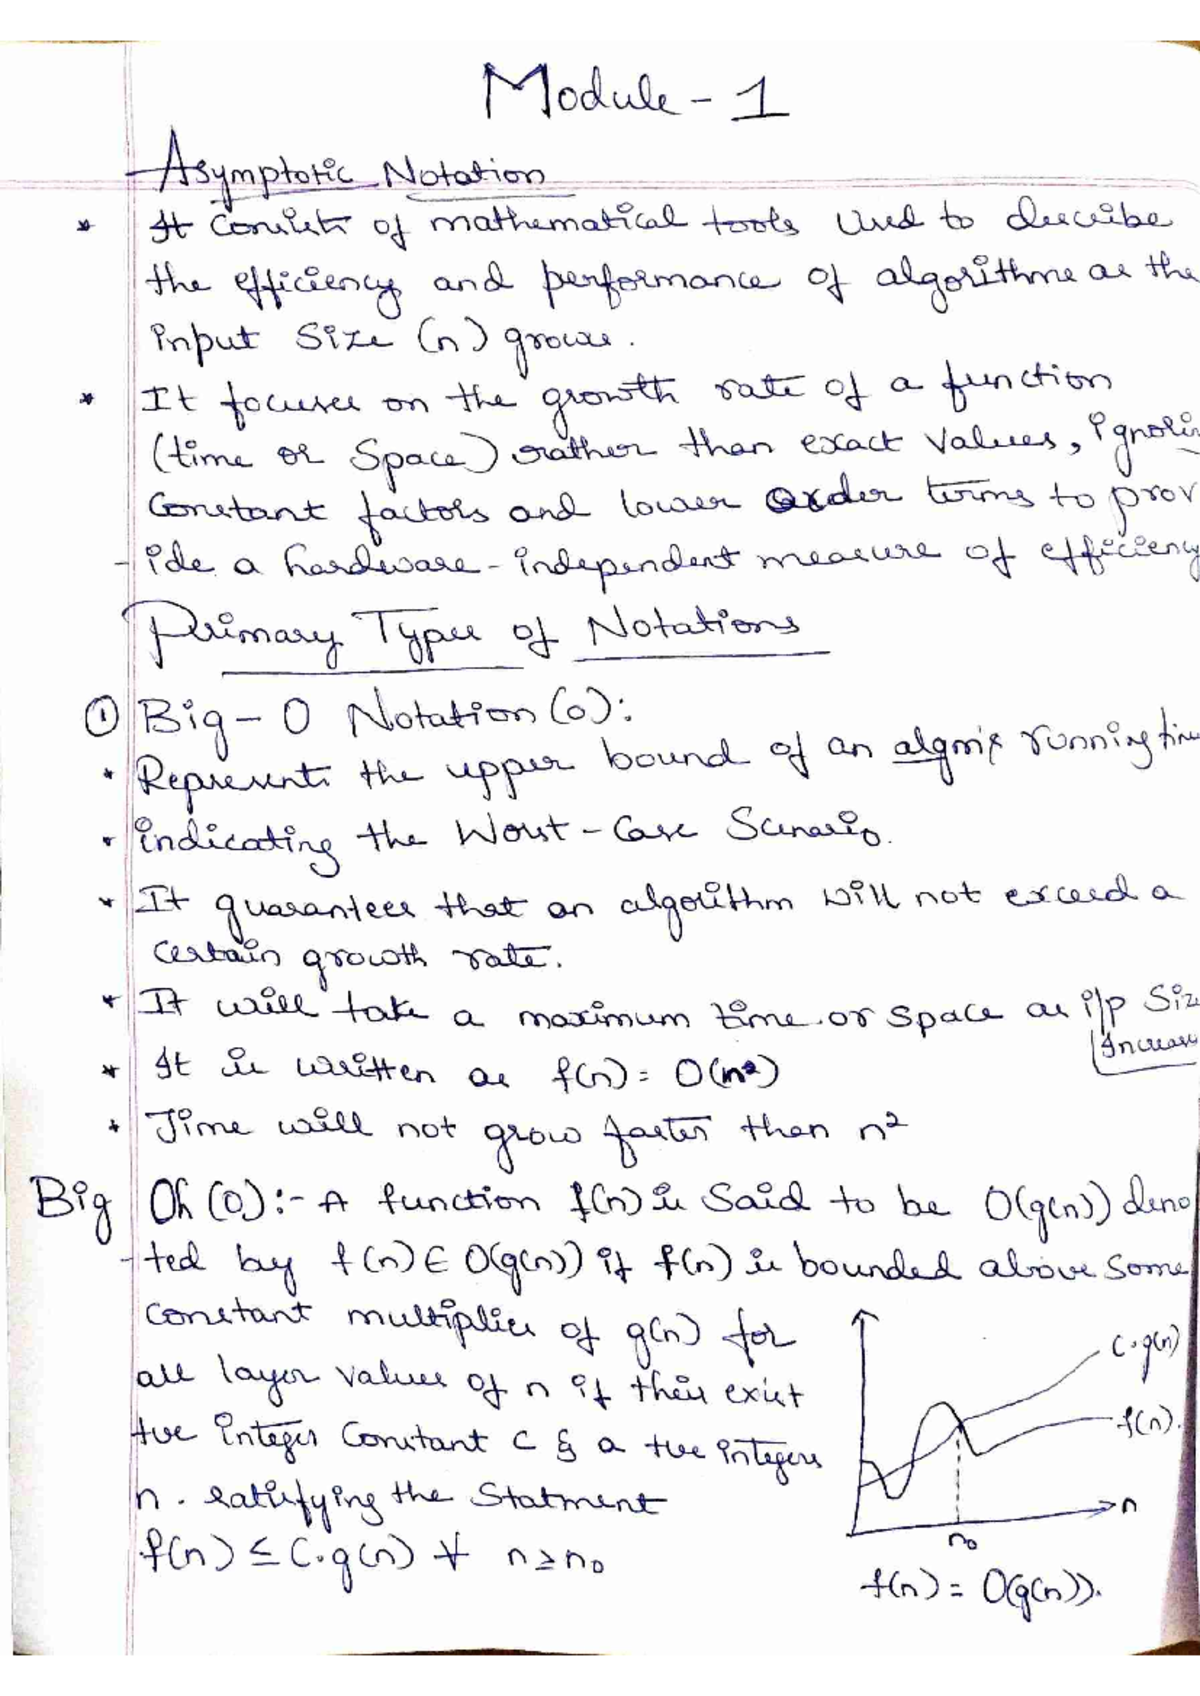 Module - 1
Asymptotic Notation
* It consists of mathematical tools used to describe
the efficiency and performance of algorithms as the
input size (n) grows.
* It focuses on the growth rate of a function
(time or space) rather than exact values, ignorin
constant factors and lower order terms to prov
- ide a hardware - independent measure of efficiency
Primary Types of Notations
① Big - O Notation (o):
* Represents the upper bound of an running time
* indicating the Worst - Case Scenario.
* It guarantees that an algorithm will not exceed a
certain growth rate.
* It will take a maximum time or space as i/p Siz
Increase
* It is written as f(n) = O(n²)
* Time will not grow faster than n²
Big Oh (O):- A function f(n) is said to be O(g(n)) deno
- ted by f(n) ∈ O(g(n)) if f(n) is bounded above some
constant multiplies of g(n) for
all layer values of n if their exist
+ve integer constant c & a +ve integers
n. satisfying the statment
f(n) ≤ C.g(n) ∀ n ≥ n₀
C.g(n)
f(n).
n
n₀
f(n) = O(g(n)).